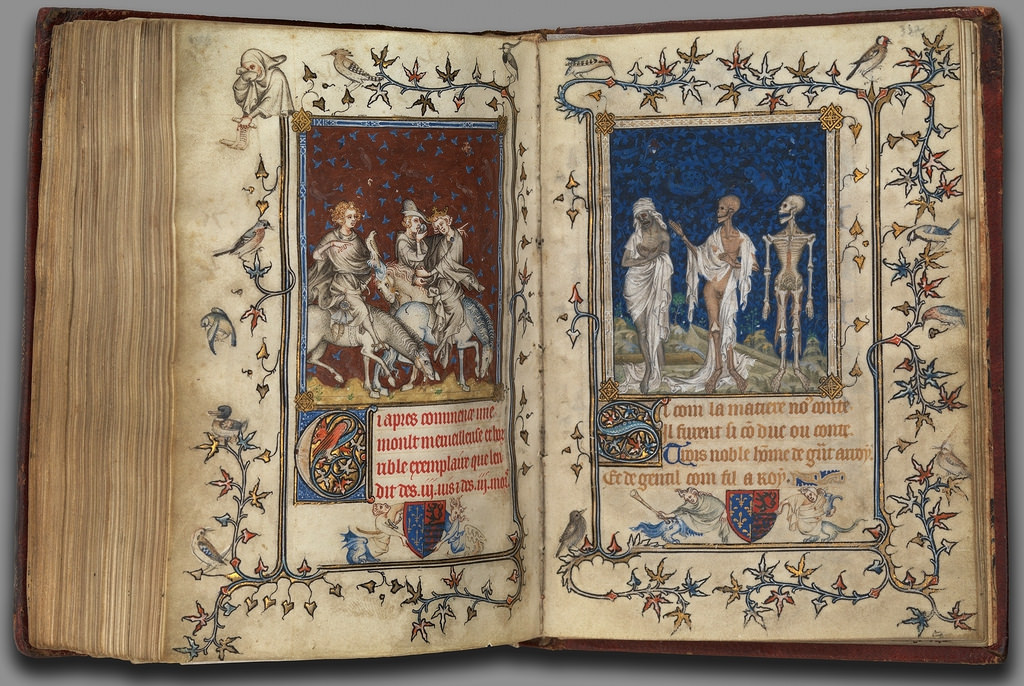 Ci apres commence une
moult merueilleuse et hor
rible exemplaire que len
dit des .iij. uis ⁊ des .iij. mors
Sil com la matiere no⁹ conte
Il furent si cō duc ou conte.
Trois noble hōme de grāt arroy.
Et de gentil com fil a roy.